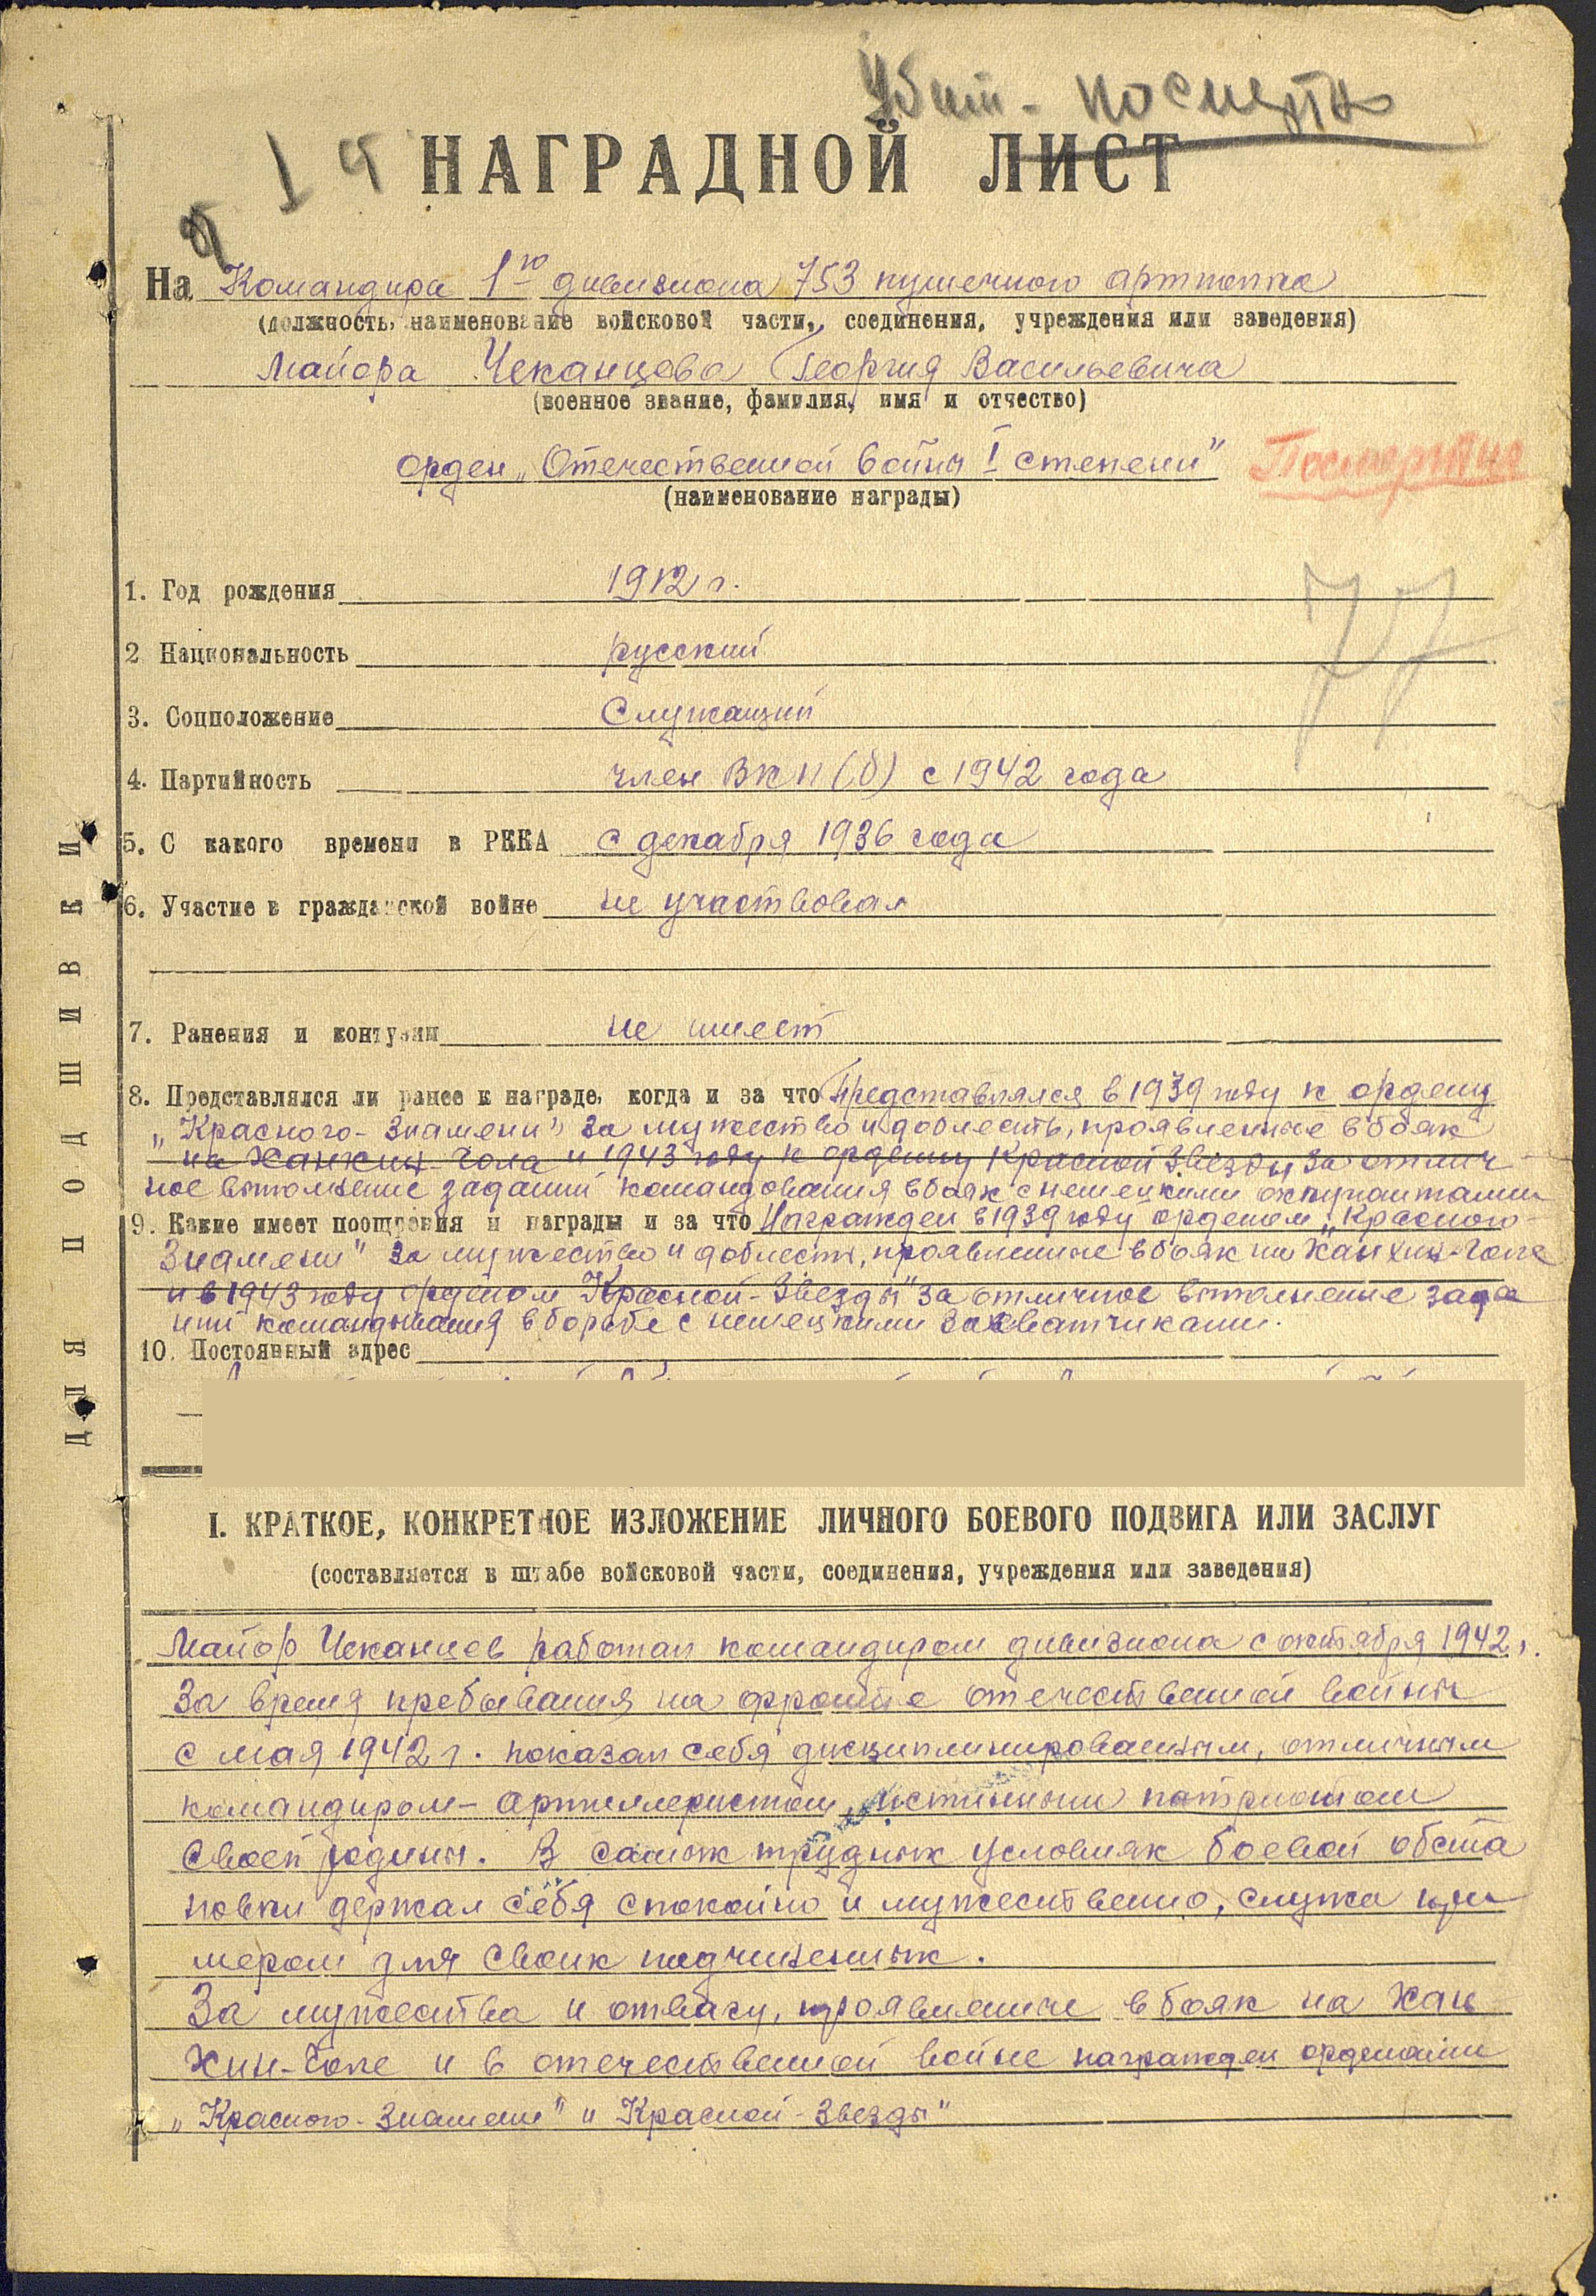 Убит - посмертн
НАГРАДНОЙ ЛИСТ
На Командира 1го дивизиона 753 пушечного артполка
(должность, наименование войсковой части, соединения, учреждения или заведения)
Майора Чеканцева Георгия Васильевича
(военное звание, фамилия, имя и отчество)
орден „Отечественной войны I степени" Посмертно
(наименование награды)
77
1. Год рождения 1912 г.
2 Национальность русский
3. Соцположение Служащий
4. Партийность член ВКП(б) с 1942 года
5. С какого времени в РККА с декабря 1936 года
6. Участие в гражданской войне не участвовал
7. Ранения и контузии не имеет
8. Представлялся ли ранее к награде, когда и за что Представлялся в 1939 году к ордену
„Красного-Знамени" за мужество и доблесть, проявленные в боях
на Ханхин-Гола и 1943 году к ордену Красной Звезды за отлич
ное выполнение заданий командования в боях с немецкими оккупантами
9. Какие имеет поощрения и награды и за что Награжден в 1939 году орденом „Красного-
Знамени" за мужество и доблесть, проявленные в боях на Ханхин-Голе
и в 1943 году орденом „Красной-Звезды" за отличное выполнение зада
ний командования в борьбе с немецкими захватчиками.
10. Постоянный адрес
ДЛЯ ПОДШИВКИ
I. КРАТКОЕ, КОНКРЕТНОЕ ИЗЛОЖЕНИЕ ЛИЧНОГО БОЕВОГО ПОДВИГА ИЛИ ЗАСЛУГ
(составляется в штабе войсковой части, соединения, учреждения или заведения)
Майор Чеканцев работал командиром дивизиона с октября 1942 г.
За время пребывания на фронте отечественной войны
с мая 1942 г. показал себя дисциплинированным, отличным
командиром-артиллеристом, истинным патриотом
своей родины. В самых трудных условиях боевой обста
новки держал себя спокойно и мужественно, служа при
мером для своих подчиненных.
За мужества и отвагу, проявленные в боях на Хан
хин-Голе и в отечественной войне награжден орденами
„Красного-Знамени" и Красной-Звезды"